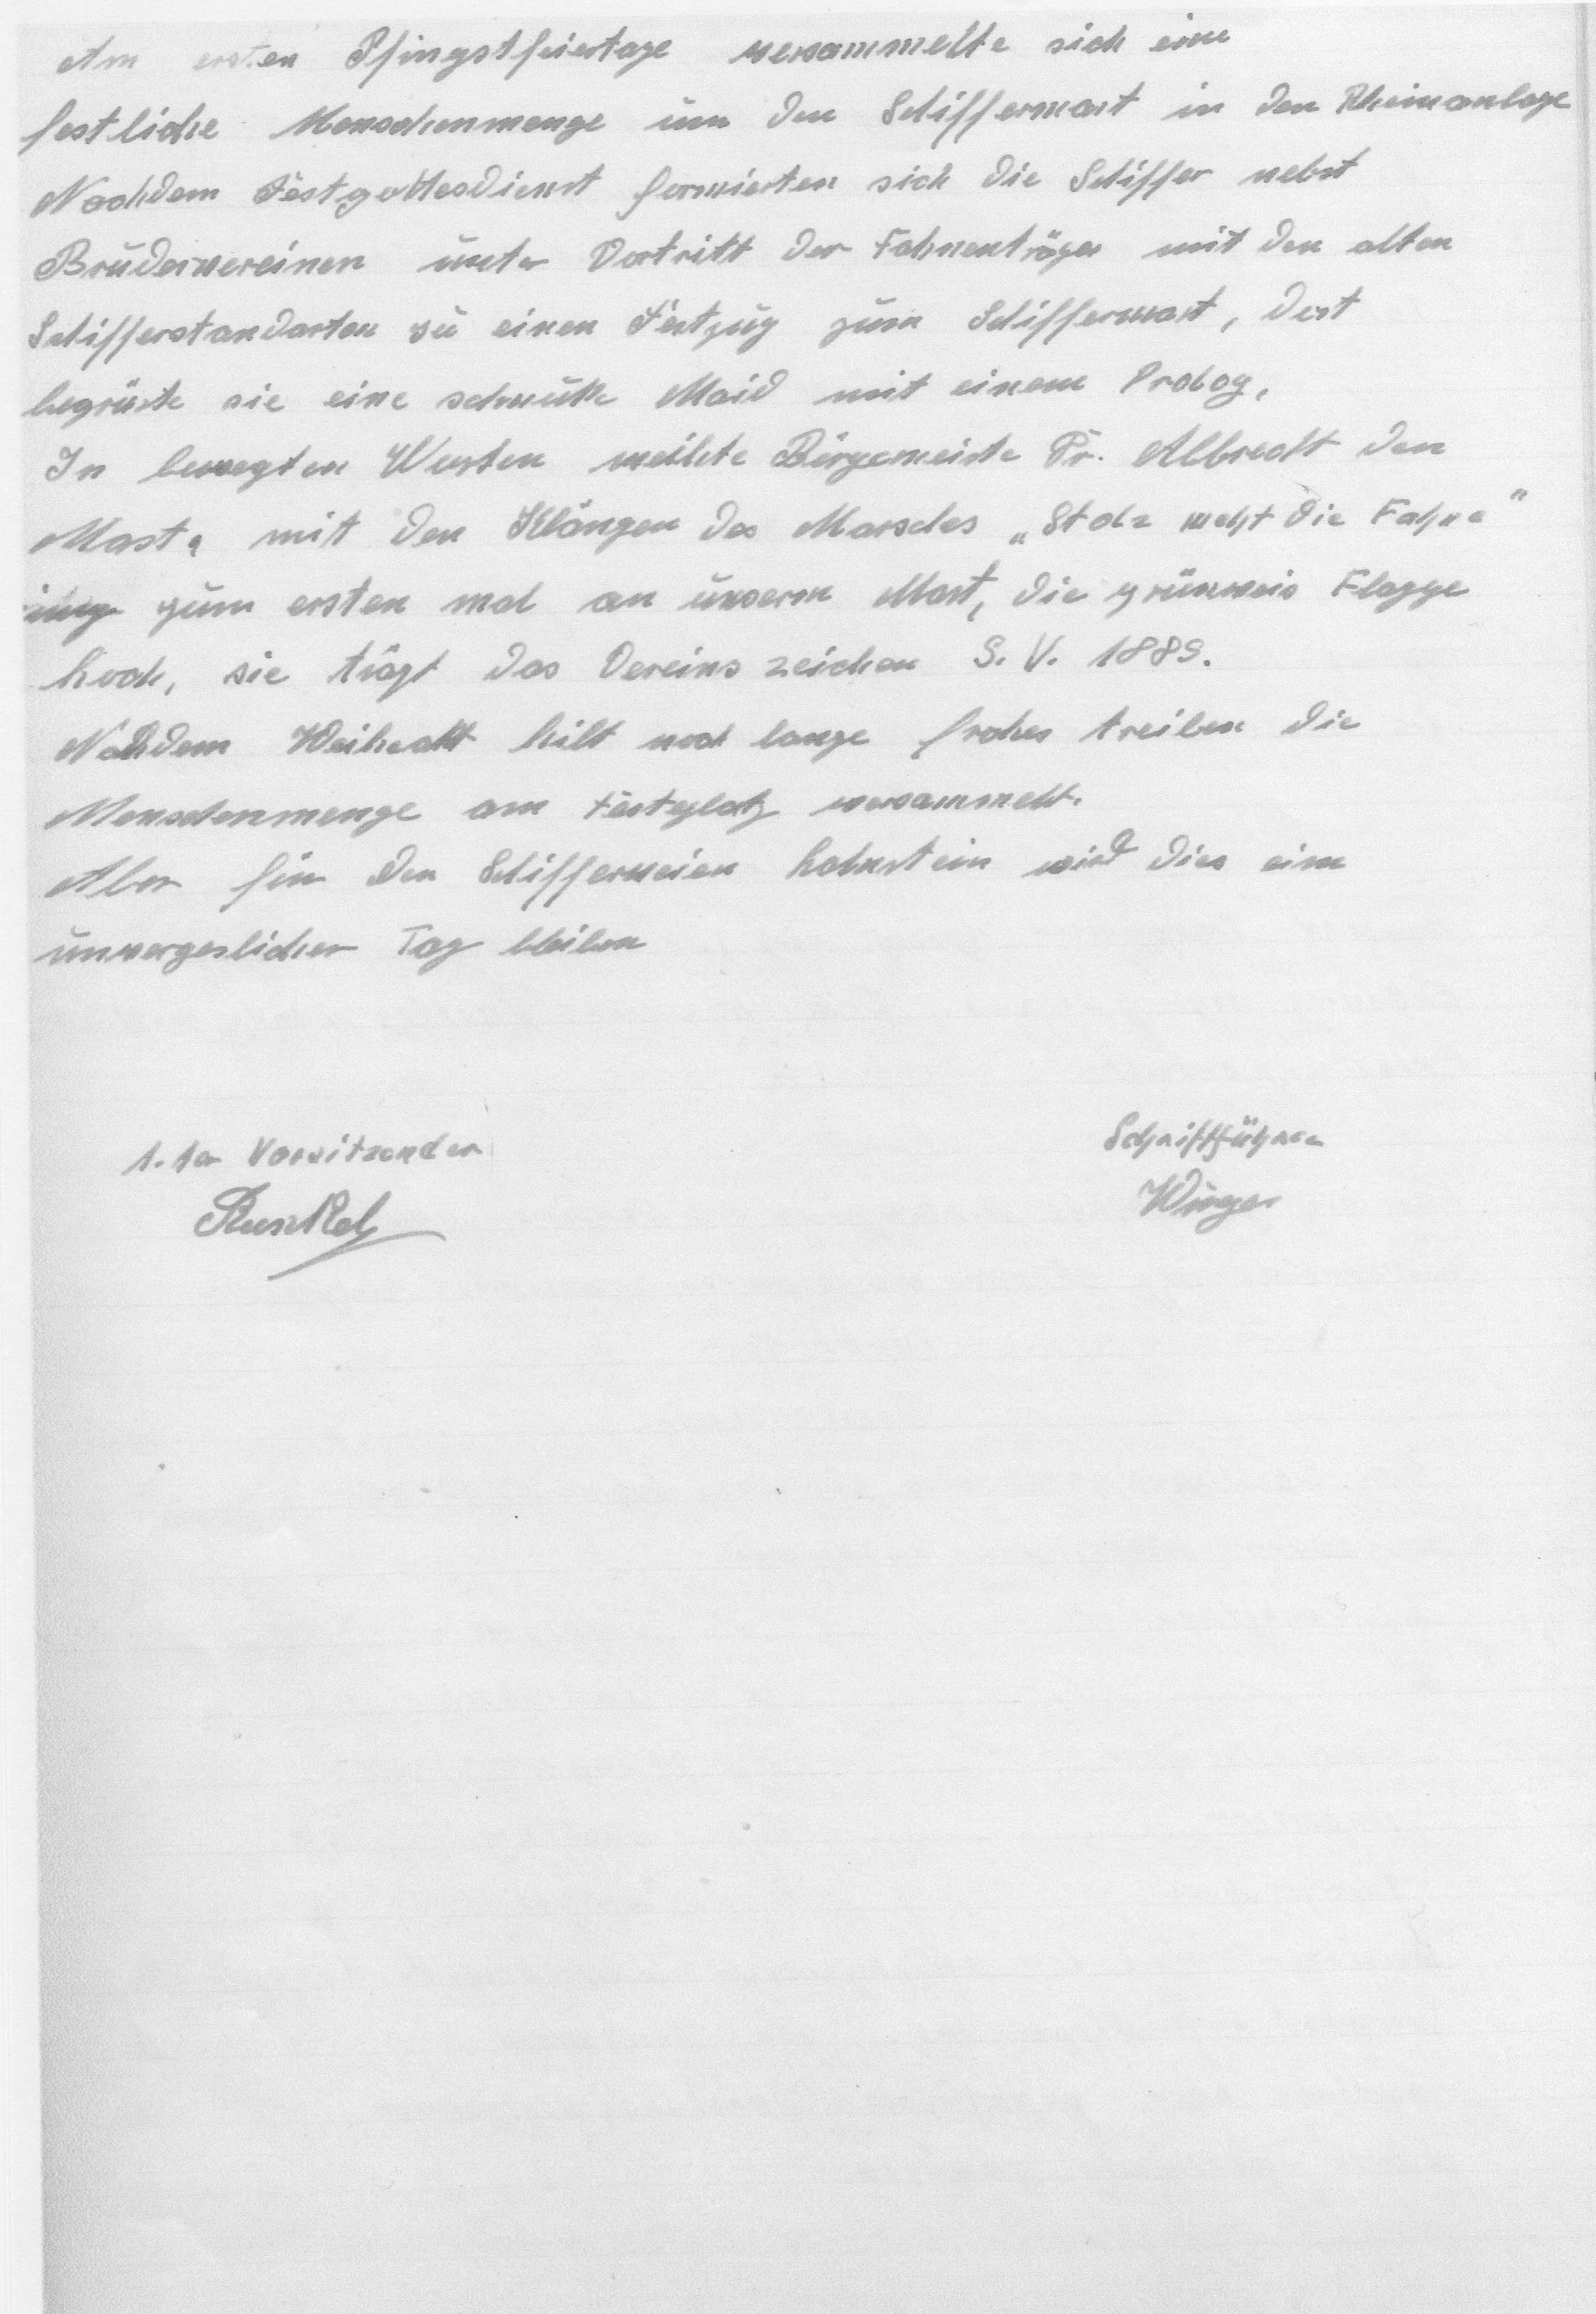 Am ersten Pfingstfeiertage versammelte sich eine
festliche Menschenmenge um den Schiffermast in den Rheinanlage
Nachdem Festgottesdienst formierten sich die Schiffer nebst
Brudervereinen unter Vortritt der Fahnenträger mit den alten
Schifferstandarten zu einen Festzug zum Schiffermast, dort
begrüste sie eine schmucke Maid mit einem Prolog,
In bewegten Worten weihte Bürgemeiste Dr. Albrecht den
Mast, mit den Klängen des Marsches „Stolz weht die Fahne"
ging zum ersten mal an unserm Mast, die grünweis Flagge
hoch, sie trägt das Vereinszeichen S. V. 1889.
Nachdem Weiheakt hilt noch lange frohes treiben die
Menschenmenge am Festeplatz versammelt.
Aber für den Schifferverein Lahnstein wird dies ein
unvergeslicher Tag bleiben
1. ter Vorsitzender
Schriftführer
Runkel